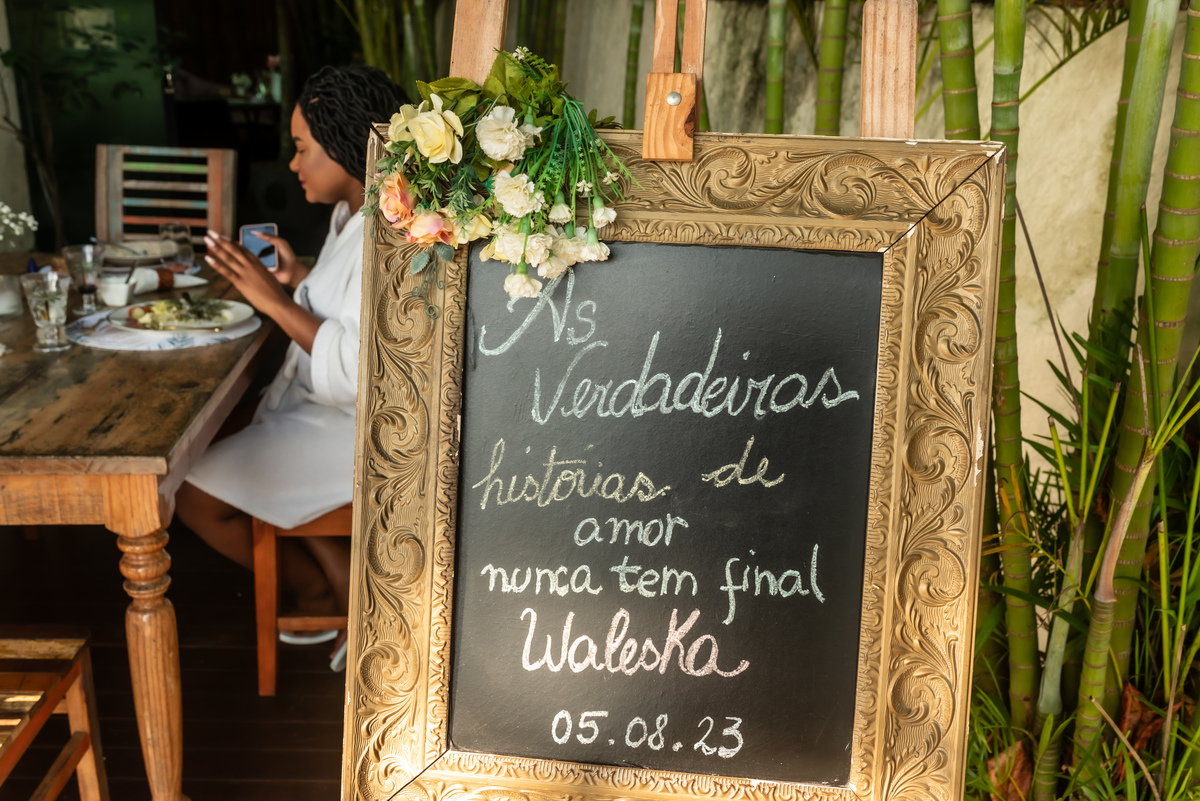 As
Verdadeiras
histórias de
amor
nunca tem final
Waleska
05.08.23